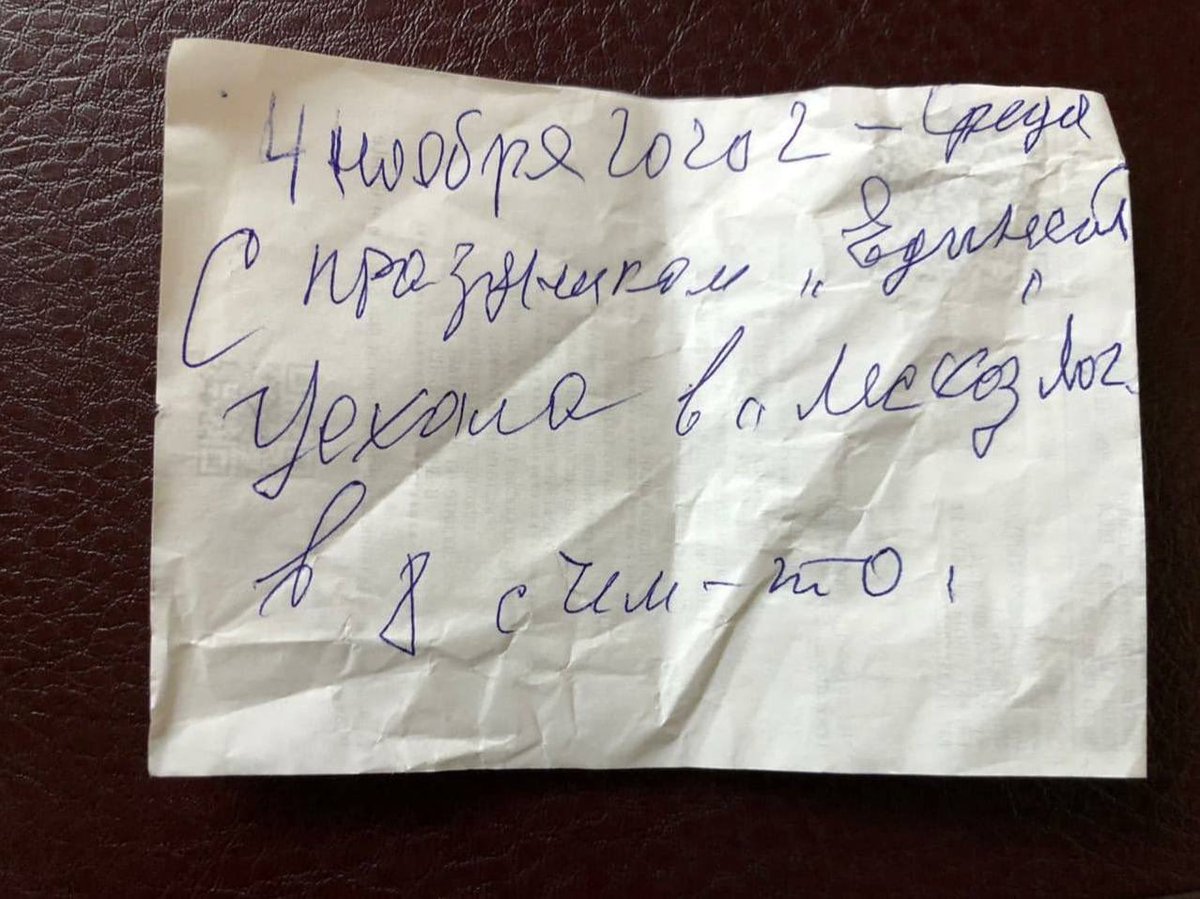 4 ноября 2020 г – Среда
С праздником „Единств"
Уехала в „Лесхоз
в 8 с чем-то.